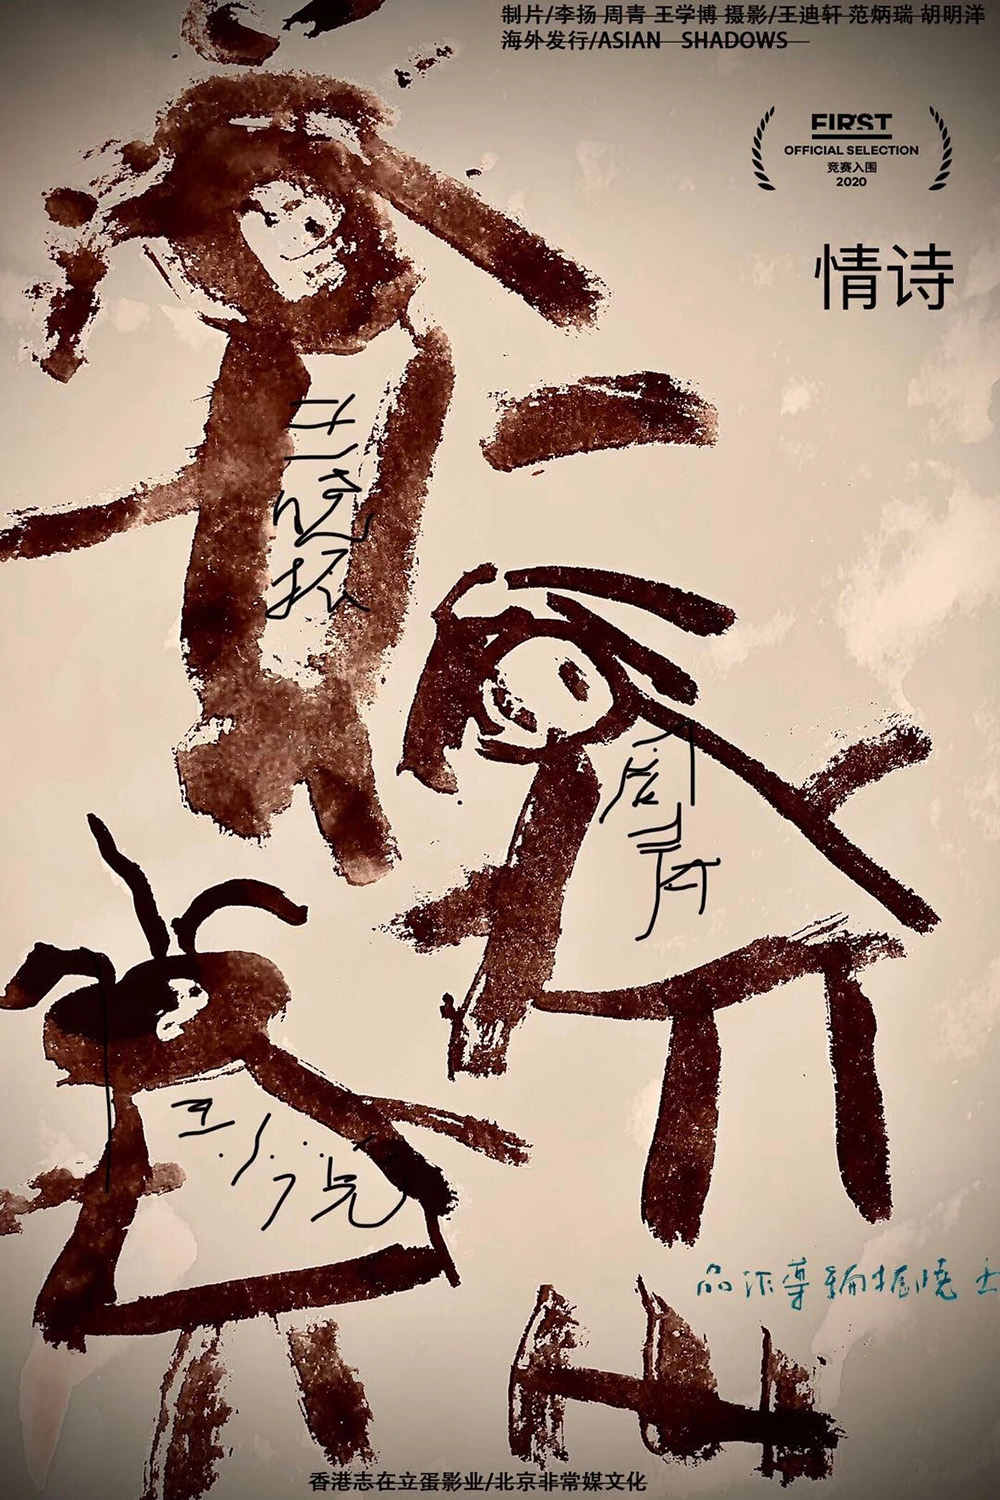 制片/李扬 周青 王学博 摄影/王迪轩 范炳瑞 胡明洋
海外发行/ASIAN SHADOWS
FIRST
OFFICIAL SELECTION
竞赛入围
2020
情诗
王晓振
周青
王晓振编导作品
香港志在立蛋影业/北京非常媒文化